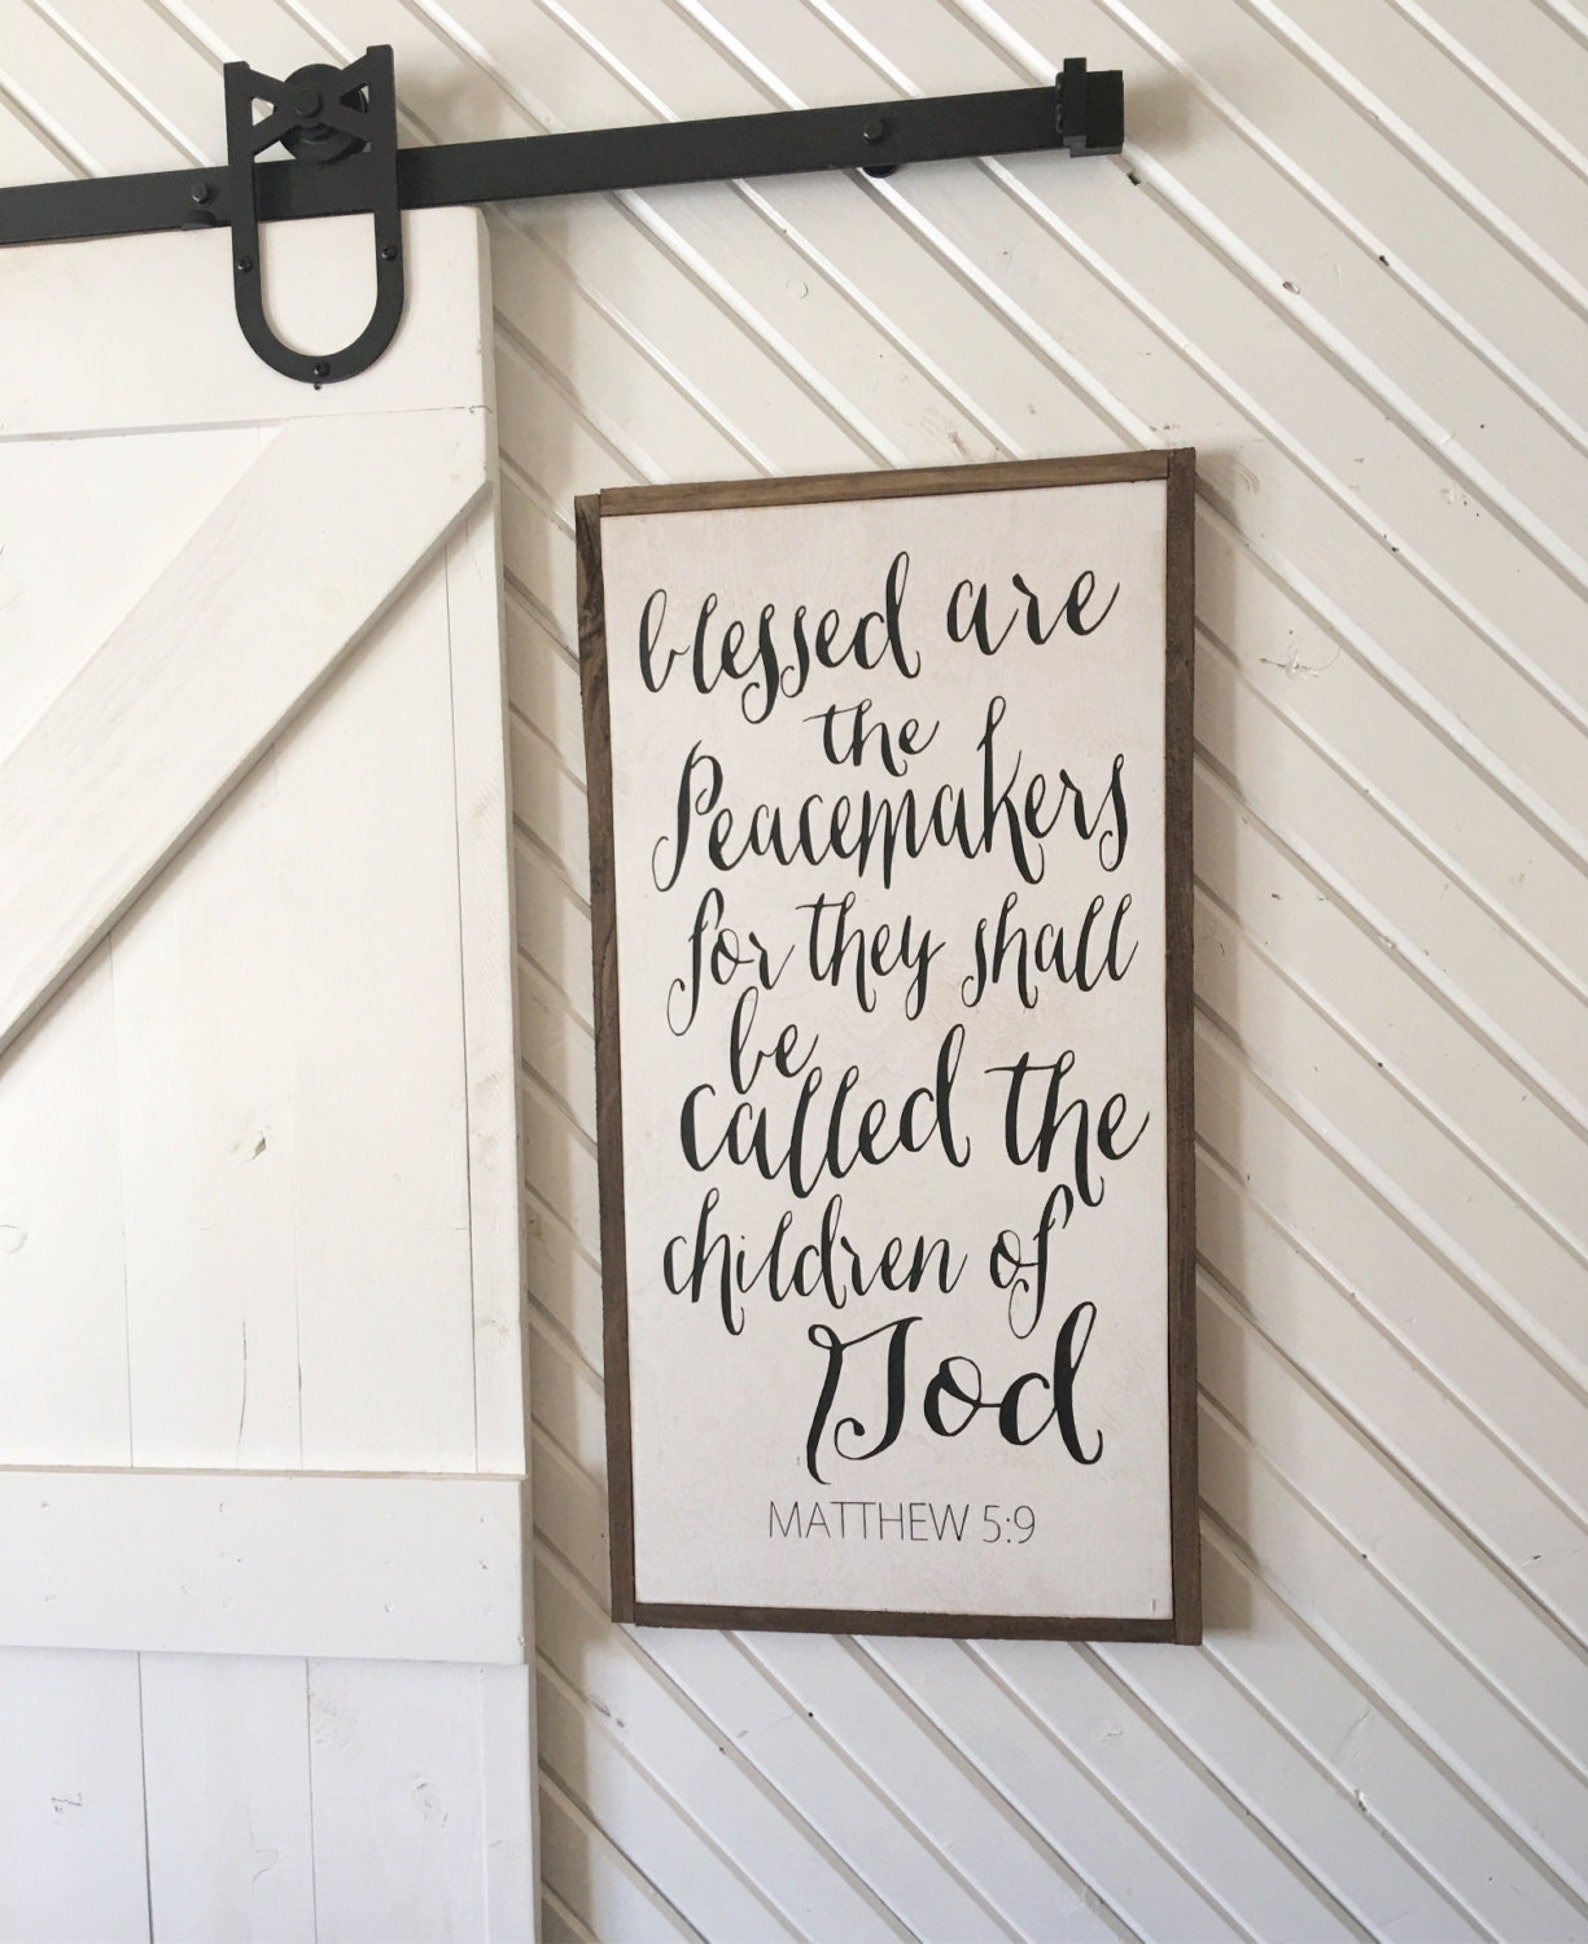 blessed are
the
Peacemakers
for they shall
be
called the
children of
God
MATTHEW 5:9